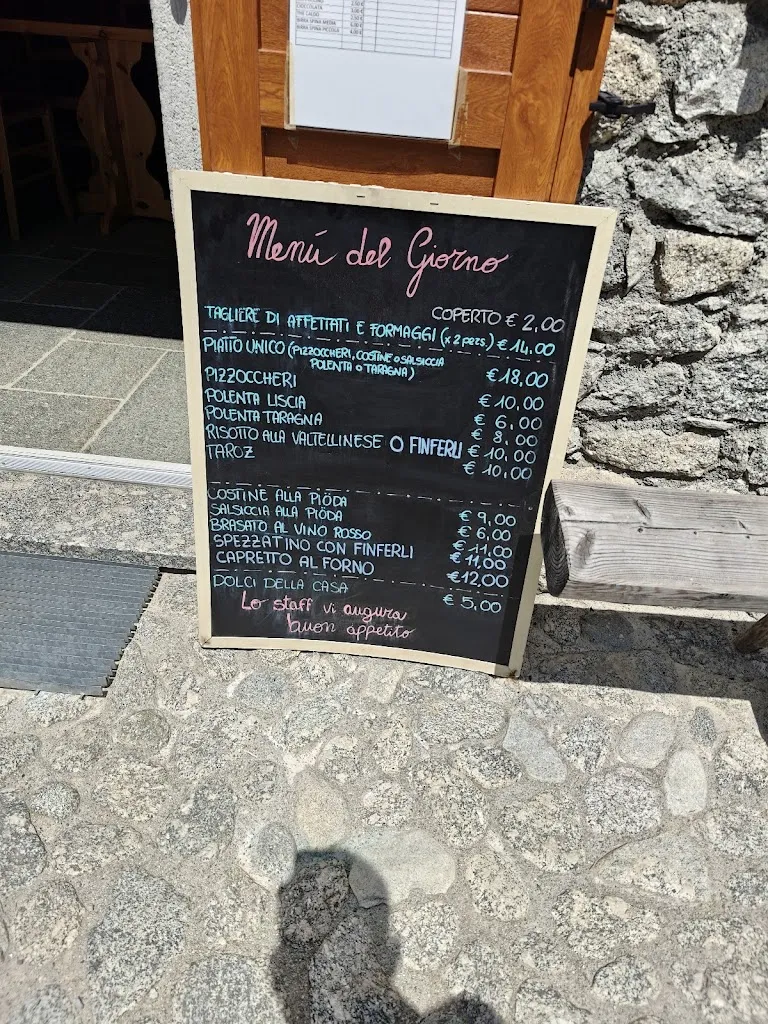 CIOCCOLATA 3,00 €
THE CALDO 2,50 €
BIRRA SPINA MEDIA
BIRRA SPINA PICCOLA
Menú del Giorno
COPERTO € 2,00
TAGLIERE DI AFFETTATI E FORMAGGI (x 2 pers.) € 14,00
PIATTO UNICO (PIZZOCCHERI, COSTINE O SALSICCIA
POLENTA O TARAGNA) € 18,00
PIZZOCCHERI € 10,00
POLENTA LISCIA € 6,00
POLENTA TARAGNA € 8,00
RISOTTO ALLA VALTELLINESE O FINFERLI € 10,00
TAROZ € 10,00
COSTINE ALLA PIÖDA € 9,00
SALSICCIA ALLA PIÖDA € 6,00
BRASATO AL VINO ROSSO € 11,00
SPEZZATINO CON FINFERLI € 11,00
CAPRETTO AL FORNO € 12,00
DOLCI DELLA CASA € 5,00
Lo staff vi augura
buon appetito